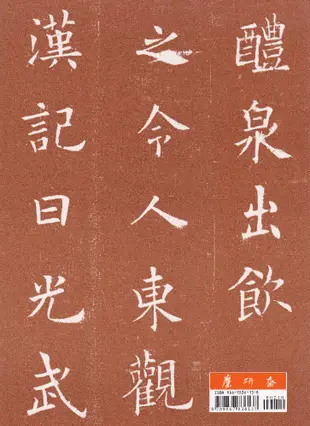 醴泉出飲
之令人東觀
漢記曰光武